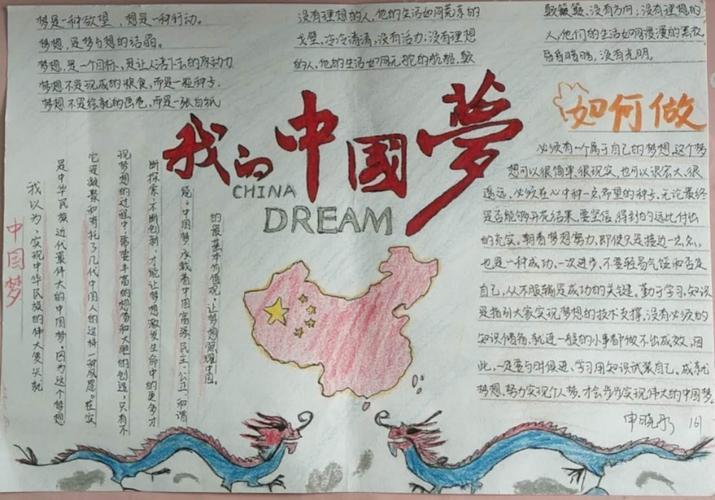 梦是一种欲望，想是一种行动。
梦想，是梦与想的结晶。
梦想，是一个目标，是让人活下去的原动力
梦想不是现成的粮食，而是一粒种子，
梦想不是绘就的画卷，而是一张白纸
没有理想的人，他的生活如同荒凉的
戈壁，冷冷清清，没有活力；没有理想
的人，他的生活如同无舵的航船，
没有方向；没有理想的
人，他们的生活如同漫漫的黑夜
没有光明。
我的中国夢
CHINA
DREAM
如何做
必须有一个属于自己的梦想，这个梦
想可以很简单，很现实，也可以很宏大，很
遥远，必须在心中种一点希望的种子，无论最终
是否能够开花结果，要坚信，得到的远比付出
的充实。朝着梦想努力，即使只是接近一点点，
也是一种成功，一次进步，不要轻易气馁和否定
自己，从不服输是成功的关键，勤于学习，知识
是指引大家实现梦想的技术支撑，没有必须的
知识储备，就连一般的小事都做不出成效，因
此，一定要与时俱进，学习用知识武装自己，成就
梦想，努力实现个人梦，才会步步实现伟大的中国梦
中国梦
我以为，实现中华民族的伟大复兴就
是中华民族近代最伟大的中国梦，因为这个梦想
它是凝聚和寄托了几代中国人的这样一种夙愿。在实
现梦想的过程中，需要丰富的想象和大胆的创造，只有不
断探索，不断创新，才能让梦想激发生命中的更多才
能。中国梦承载着中国富强、民主、公正、和谐
的最基本的价值观，让梦想照耀中国。
16